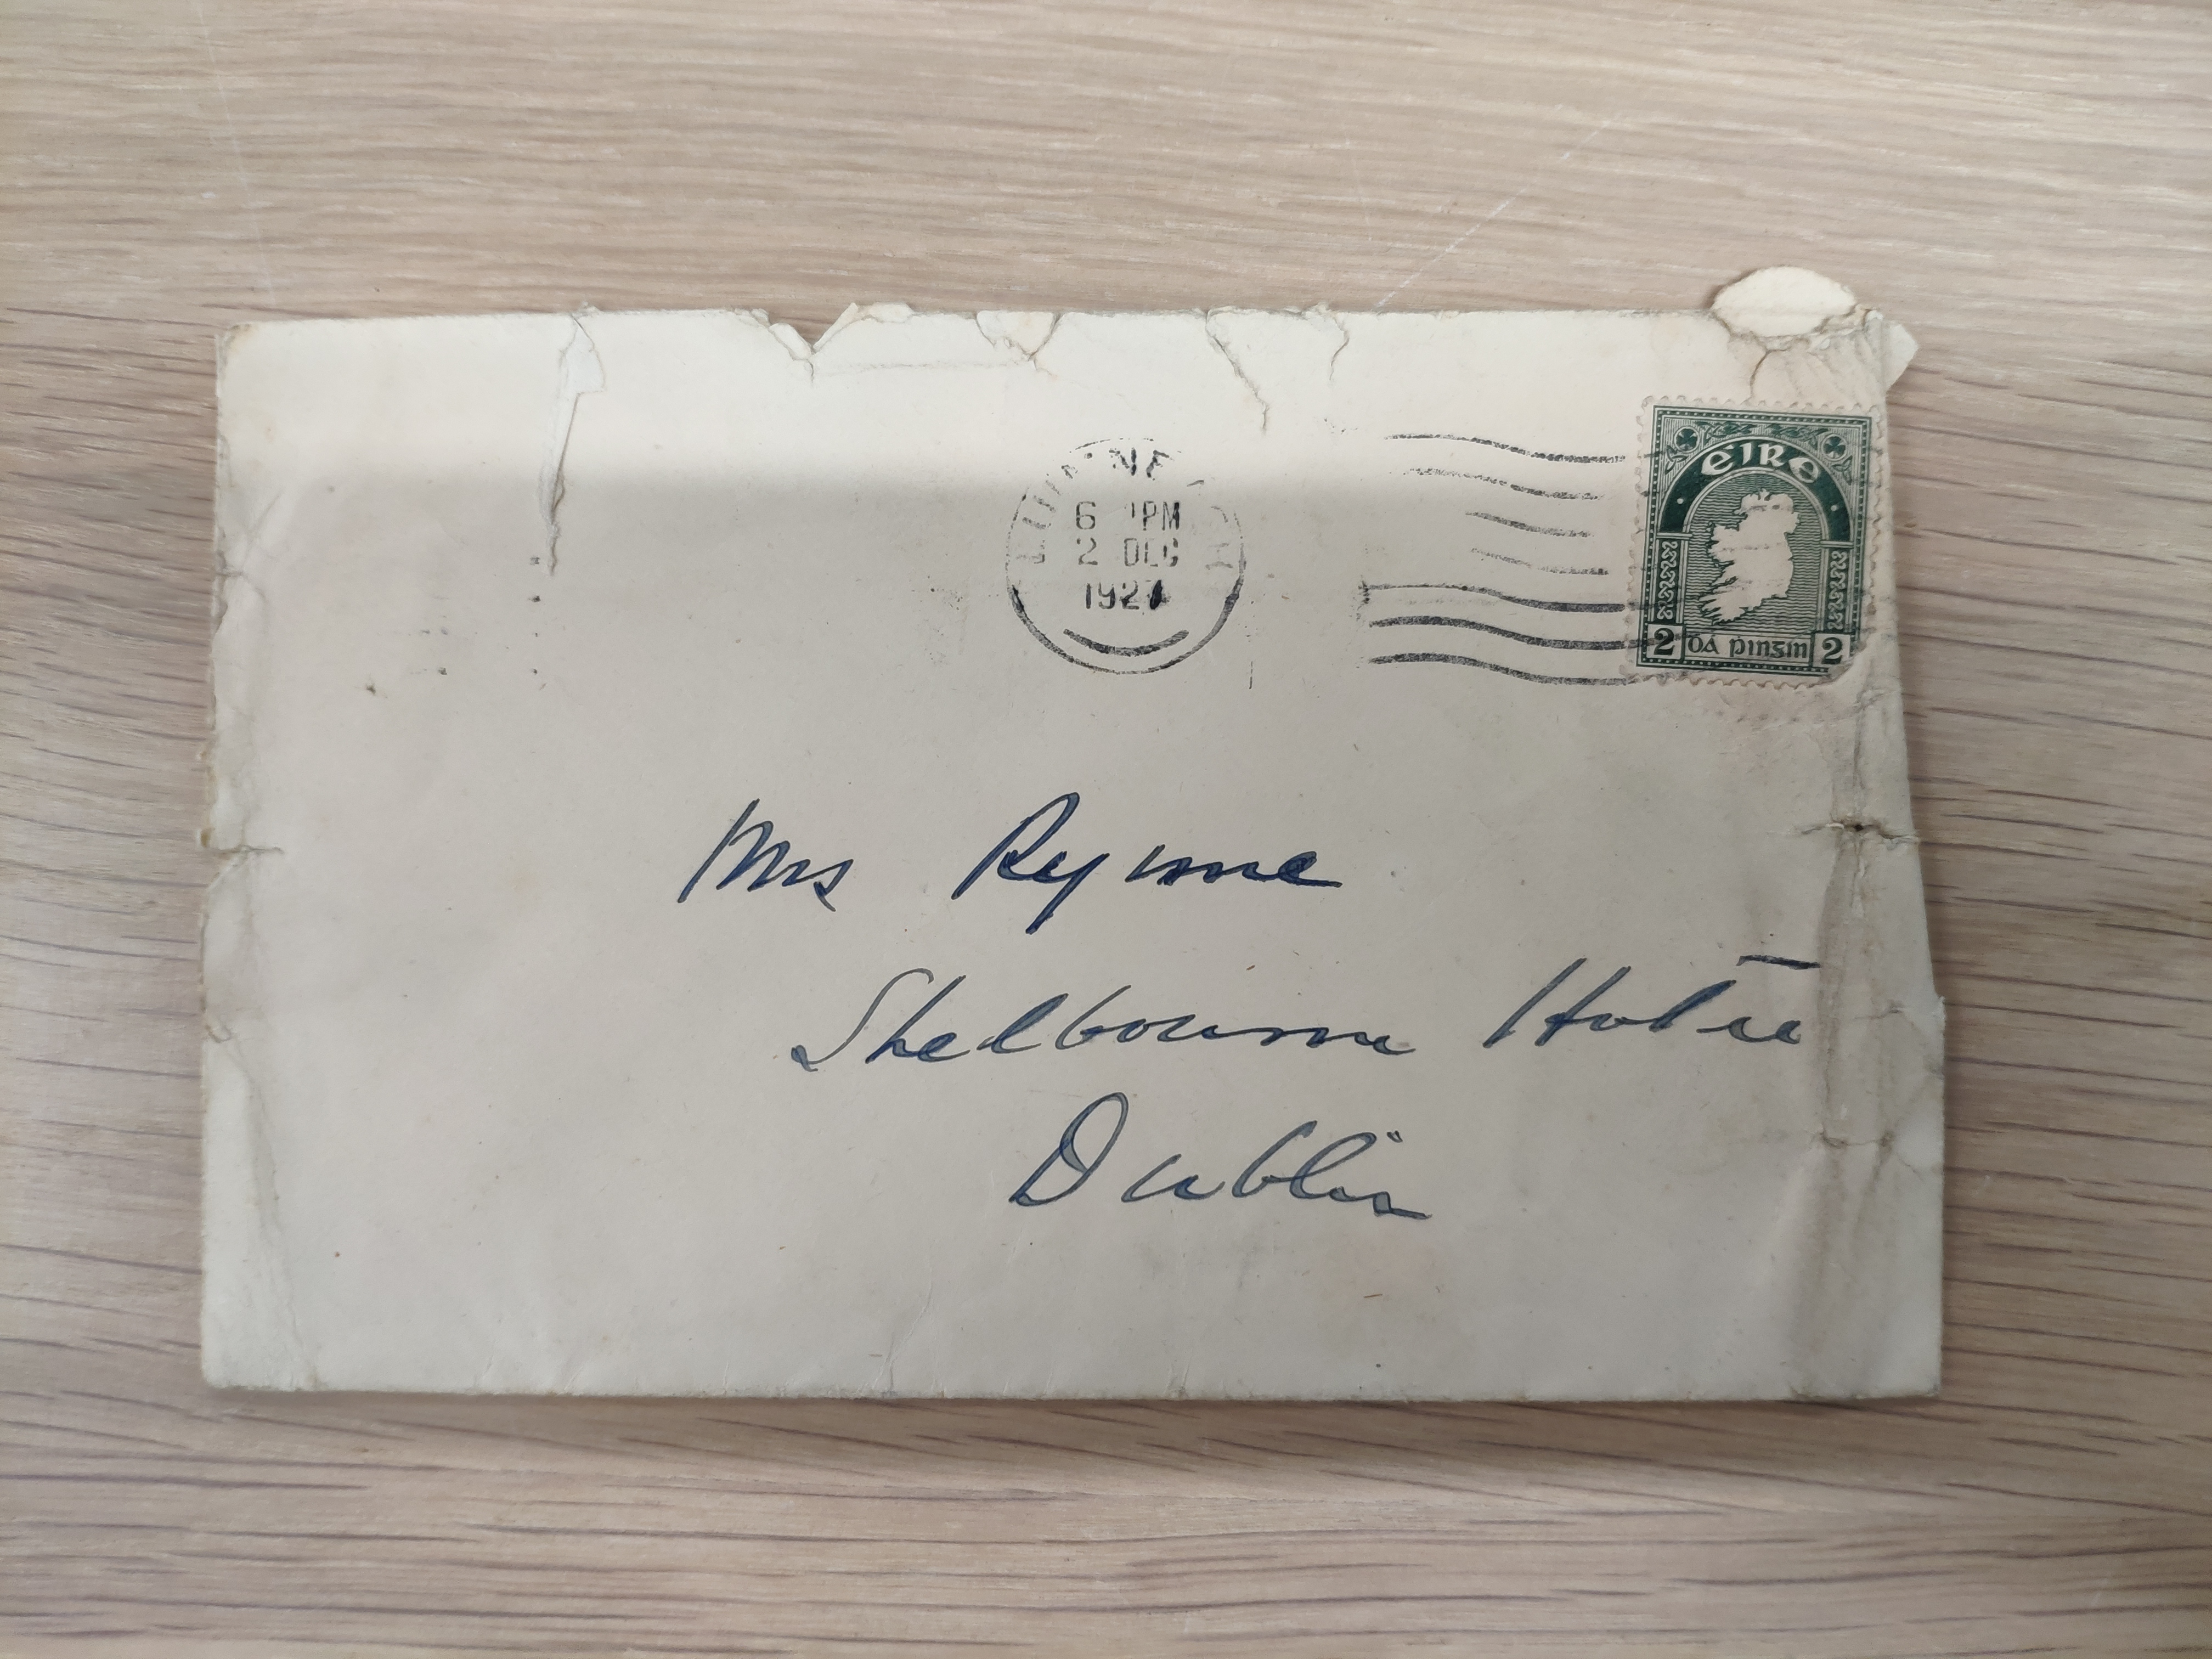 6 PM
2 DEC
1927
EIRE
2 ÓA pinsin 2
Mrs Rynne
Shelbourne Hotel
Dublin